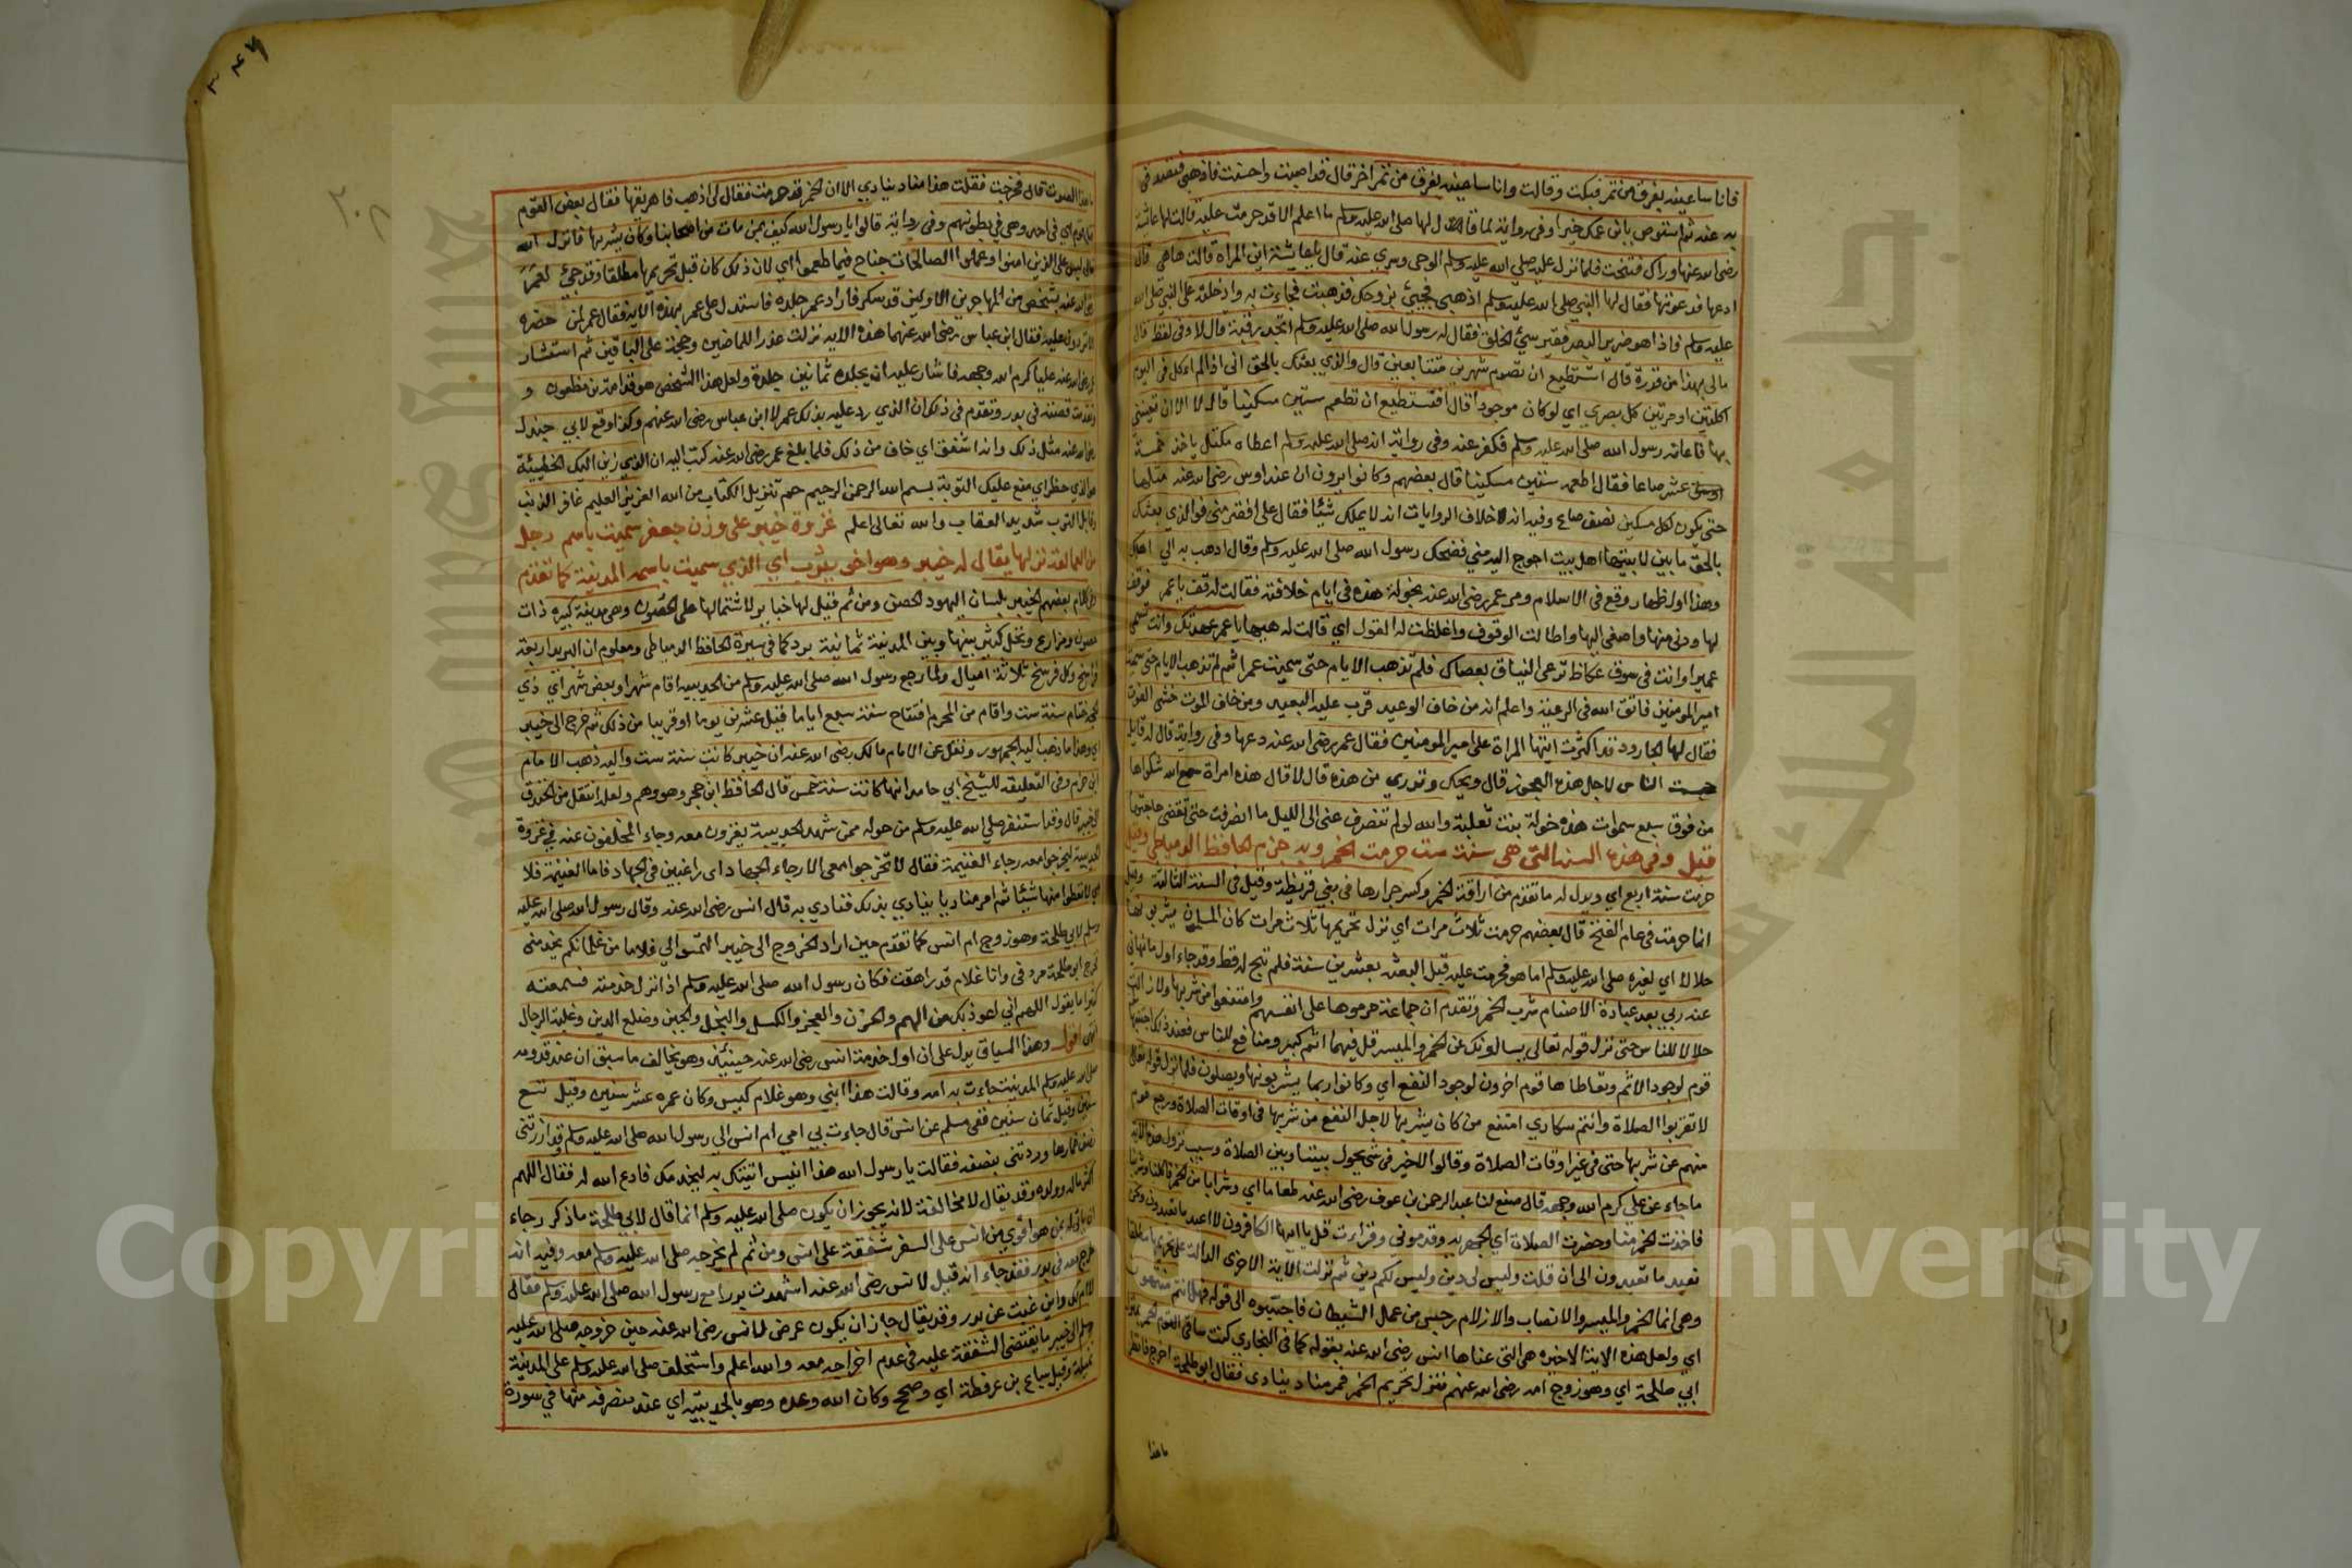 فانا ساعينه بفرق من تمر فبكت وقالت وانا ساعينه بفرق من تمر اخر قال قد اصبت واحسنت فاذهبي فتصدقي
به عنه ثم استوصي بابن عمك خيرا وفي رواية لما قال لها صلى الله عليه وسلم ما اعلم الا قد حرمت عليه قالت لها عائشة
رضى الله عنها وراك فتنحت فلما نزل عليه صلى الله عليه وسلم الوحى وسري عنه قال يا عايشة اين المراة قالت هاهي قال
ادعها فدعوتها فقال لها النبي صلى الله عليه وسلم اذهبي فجيئي بزوجك فذهبت فجاءت به وادخلته على النبي صلى الله
عليه وسلم فاذا هو ضرير البصر فقير سيئ الخلق فقال له رسول الله صلى الله عليه وسلم اتجد رقبة قال لا وفى لفظ قال
مالى بهذا من قدرة قال اتستطيع ان تصوم شهرين متتابعين قال والذي بعثك بالحق انى اذا لم اكل في اليوم
اكلتين او مرتين كل بصري اي لو كان موجودا قال افتستطيع ان تطعم ستين مسكينا قال لا الا ان تعينني
بها فاعانه رسول الله صلى الله عليه وسلم فكفر عنه وفى رواية انه صلى الله عليه وسلم اعطاه مكتل ياخذ خمسة
عشر صاعا فقال اطعمه ستين مسكينا قال بعضهم وكانوا يرون ان عند اوس رضى الله عنه مثلها
حتى يكون لكل مسكين نصف صاع وفيه انه خلاف الروايات انه لا يملك شيئا فقال على افقر مني فوالذي بعثك
بالحق ما بين لابيتها اهل بيت احوج اليه مني فضحك رسول الله صلى الله عليه وسلم وقال اذهب به الي اهلك
وهذا اول ظهار وقع فى الاسلام ومر عمر رضى الله عنه بخولة هذه فى ايام خلافته فقالت له قف يا عمر فوقف
لها ودنى منها واصغى اليها واطالت الوقوف واغلظت له القول اي قالت له هيها يا عمر عهدتك وانت تسمى
عميرا وانت في سوق عكاظ ترعى الفيان بعصاك فلم تذهب الايام حتى سميت عمر ثم لم تذهب الايام حتى سميت
امير المومنين فاتق الله في الرعية واعلم انه من خاف الوعيد قرب عليه البعيد ومن خاف الموت خشى الفوت
فقال لها الجارود قد اكثرت ايتها المراة على امير المومنين فقال عمر رضى الله عنه دعها وفى رواية قال له قايل
حبست الناس لاجل هذه العجوز قال ويحك وتدري من هذه قال لا قال هذه امراة سمع الله شكواها
من فوق سبع سموات هذه خولة بنت ثعلبة والله لو لم تنصرف عنى الى الليل ما انصرفت حتى تقضى حاجتها
قيل وفى هذه السنة التى هى سنة ست حرمت الخمر وبه جزم الحافظ الدمياطي وقيل
حرمت سنة اربع اي ويدل له ما تقدم من اراقة الخمر وكسر جرارها فى بني قريظة وقيل في السنة الثالثة وقيل
انما حرمت فى عام الفتح قال بعضهم حرمت ثلاث مرات اي نزل تحريمها ثلاث مرات كان المسلمون يشربونها
حلالا اي لغيره صلى الله عليه وسلم اما هو فحرمت عليه قبل البعثة بعشرين سنة فلم تبح له قط وقد جاء اول ما نهاني
عنه ربي بعد عبادة الاصنام شرب الخمر وتقدم ان جماعة حرموها على انفسهم وامتنعوا من شربها ولا زالت
حلالا للناس حتى نزل قوله تعالى يسالونك عن الخمر والميسر قل فيهما اثم كبير ومنافع للناس فعند ذلك اجتنبها
قوم لوجود الاثم وتعاطاها قوم اخرون لوجود النفع اي وكانوا ربما يشربونها ويصلون فلما نزل قوله تعالى
لا تقربوا الصلاة وانتم سكارى امتنع من كان يشربها لاجل النفع من شربها فى اوقات الصلاة ورجع قوم
منهم عن شربها حتى فى غير اوقات الصلاة وقالوا لا خير فى شى يحول بيننا وبين الصلاة وسبب نزول هذه الاية
ما جاء عن علي كرم الله وجهه قال صنع لنا عبد الرحمن بن عوف رضى الله عنه طعاما اي وشرابا من الخمر فاكلنا وشربنا
فاخذت الخمر منا وحضرت الصلاة اي الجهرية وقدموني وقراءت قل يا ايها الكافرون لا اعبد ما تعبدون ونحن
نعبد ما تعبدون الى ان قلت وليس لى دين وليس لكم دين ثم نزلت الآية الاخرى الدالة على تحريمها مطلقا
وهى انما الخمر والميسر والانصاب والازلام رجس من عمل الشيطان فاجتنبوه الى قوله فهل انتم منتهون
اي ولعل هذه الاية الاخيرة هى التى عناها انس رضى الله عنه بقوله كما فى البخاري كنت ساقي القوم الخمر بمنزل
ابي طلحة اي وهو زوج امه رضى الله عنهم فنزل تحريم الخمر فمر مناد ينادى فقال ابو طلحة اخرج فانظر
ما هذا
ما هذا الصوت قال فخرجت فقلت هذا مناد ينادي الا ان الخمر قد حرمت فقال لى اذهب فاهريقها فقال بعض القوم
وهى في بطونهم وفى رواية قالوا يا رسول الله كيف بمن مات من اصحابنا وكان يشربها فانزل الله
ليس على الذين امنوا وعملوا الصالحات جناح فيما طعموا اي لان ذلك كان قبل تحريمها مطلقا وقد جيئ لعمر
رضى الله عنه بشخص من المهاجرين الاولين قد سكر فاراد عمر جلده فاستدل على عمر بهذه الاية فقال عمر لمن حضره
الا تردون عليه فقال ابن عباس رضى الله عنهما هذه الاية نزلت عذرا للماضين وحجة على الباقين ثم استشار
عمر رضى الله عنه عليا كرم الله وجهه فاشار عليه ان يجلده ثمانين جلدة ولعل هذا الشخص هو قدامة بن مظعون و
تقدمت قصته فى بدر وتقدم فى ذلك ان الذي رد عليه بذلك عمر لا ابن عباس رضى الله عنهم وكذا وقع لابي جندل
رضى الله عنه مثل ذلك وانه اشفق اي خاف من ذلك فلما بلغ عمر رضى الله عنه كتب اليه ان الذي زين اليك الخطيئة
هو الذي حظر اي منع عليك التوبة بسم الله الرحمن الرحيم حم تنزيل الكتاب من الله العزيز العليم غافر الذنب
وقابل التوب شديد العقاب والله تعالى اعلم غزوة خيبر على وزن جعفر سميت باسم رجل
من العمالقة نزلها يقال له خيبر وهو اخى يثرب اي الذي سميت باسمه المدينة كما تقدم
وفى كلام بعضهم الخيبر بلسان اليهود الحصن ومن ثم قيل لها خيابر لاشتمالها على الحصون وهى مدينة كبيرة ذات
حصون ومزارع ونخل كثير بينها وبين المدينة ثمانية برد كما فى سيرة الحافظ الدمياطى ومعلوم ان البريد اربعة
فراسخ وكل فرسخ ثلاثة اميال ولما رجع رسول الله صلى الله عليه وسلم من الحديبية اقام شهرا وبعض شهر اي ذي
الحجة ختام سنة ست واقام من المحرم افتتاح سنة سبع اياما قيل عشرين يوما او قريبا من ذلك ثم خرج الى خيبر
اي وهذا ما ذهب اليه الجمهور ونقل عن الامام مالك رضى الله عنه ان خيبر كانت سنة ست واليه ذهب الامام
ابن حزم وفى التعليقة للشيخ ابي حامد انها كانت سنة خمس قال الحافظ ابن حجر وهو وهم ولعله انتقل من الخندق
الى خيبر قال وقد استنفر صلى الله عليه وسلم من حوله ممن شهد الحديبية يغزون معه وجاء المخلفون عنه في غزوة
الحديبية ليخرجوا معه رجاء الغنيمة فقال لا تخرجوا معى الا رجاء الجهاد اى راغبين فى الجهاد فاما الغنيمة فلا
اي لا تعطوا منها شيئا ثم امر مناديا ينادي بذلك فنادي به قال انس رضى الله عنه وقال رسول الله صلى الله عليه
وسلم لابي طلحة وهو زوج ام انس كما تقدم حين اراد الخروج الى خيبر التمسوا لي غلاما من غلمانكم يخدمنى
فخرج ابو طلحة مردفى وانا غلام قد راهقت فكان رسول الله صلى الله عليه وسلم اذا نزل خدمته فسمعته
كثيرا ما يقول اللهم انى اعوذ بك من الهم والحزن والعجز والكسل والبخل والجبن وضلع الدين وغلبة الرجال
انتهى اقول وهذا السياق يدل على ان اول خدمة انس رضى الله عنه حينئذ وهو يخالف ما سبق ان عند قدومه
صلى الله عليه وسلم المدينة جاءت به امه وقالت هذا ابني وهو غلام كيس وكان عمره عشر سنين وقيل تسع
سنين وقيل ثمان سنين ففى مسلم عن انس قال جاءت بي امي ام انس الى رسول الله صلى الله عليه وسلم وقد ازرتنى
نصف خمارها وردتنى بنصفه فقالت يا رسول الله هذا انيس اتيتك به ليخدمك فادع الله له فقال اللهم
اكثر ماله وولده وقد يقال لا مخالفة لانه يجوز ان يكون صلى الله عليه وسلم انما قال لابي طلحة ما ذكر رجاء
ان ياتى له بمن هو اقوي من انس على السفر شفقة على انس ومن ثم لم يخرجه صلى الله عليه وسلم معه وفيه انه
خرج معه فى بدر فقد جاء انه قيل لانس رضى الله عنه اشهدت بدرا مع رسول الله صلى الله عليه وسلم فقال
لا ام لك واين غبت عن بدر وقد يقال جاز ان يكون عرض لانس رضى الله عنه حين خروجه صلى الله عليه
وسلم الى خيبر ما يقتضى الشفقة عليه فى عدم اخراجه معه والله اعلم واستخلف صلى الله عليه وسلم على المدينة
نميلة وقيل سباع بن عرفطة اي وصحح وكان الله وعده وهو بالحديبية اي عند منصرفه منها في سورة
Copyright © King Saud University
جامعة الملك سعود